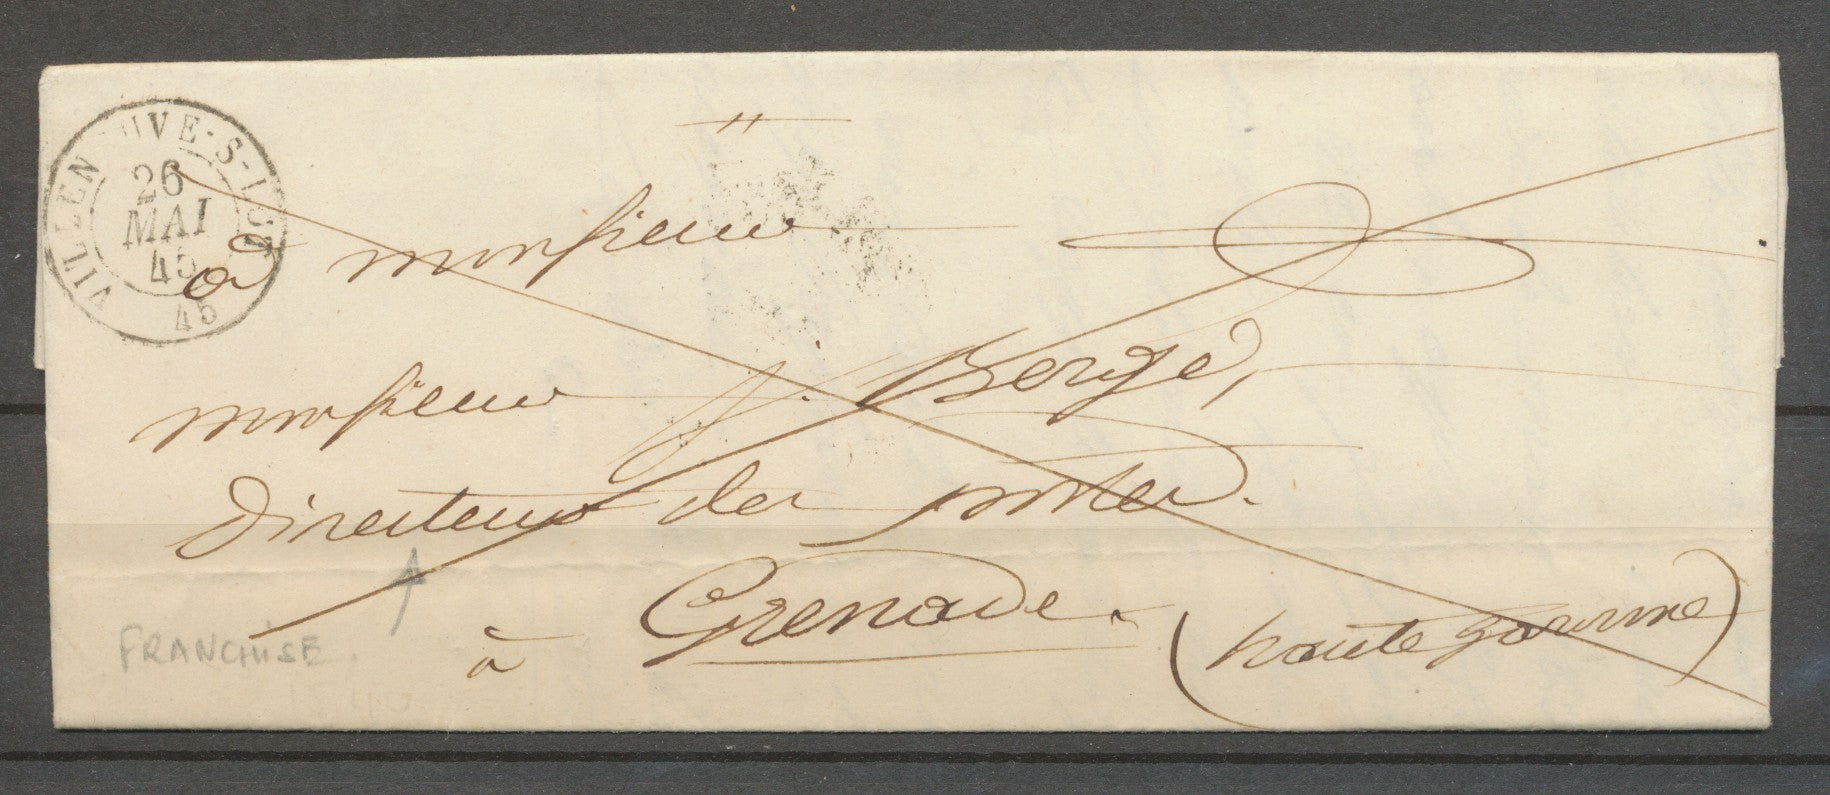 VILLENEUVE-S-LOT
26
MAI
45
45
à monsieur
monsieur J. Bergé,
directeur des postes.
à Grenade.
(haute garonne)
FRANCHISE.